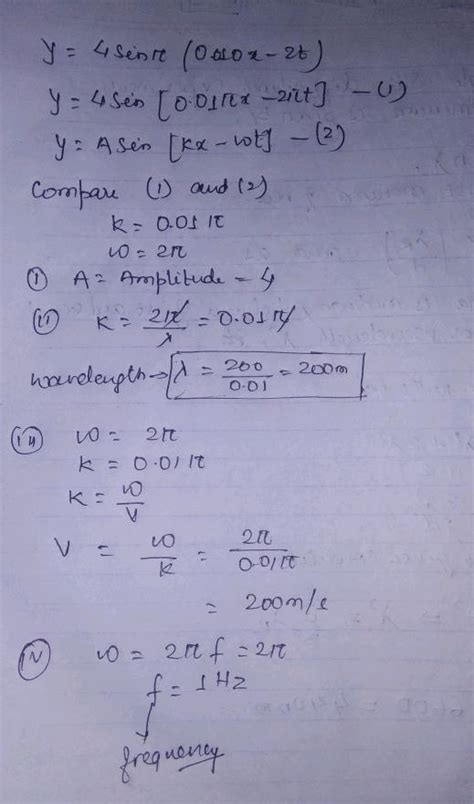 y = 4 sin π (0.010x - 2t)
y = 4 sin [0.01πx - 2πt] - (1)
y = A sin [kx - ωt] - (2)
Compare (1) and (2)
k = 0.01 π
ω = 2π
(i) A = Amplitude = 4
(ii) k = 2π/λ = 0.01π
wavelength → λ = 200/0.01 = 200m
(iii) ω = 2π
k = 0.01π
k = ω/V
V = ω/k = 2π/0.01π
= 200m/s
(iv) ω = 2π f = 2π
f = 1 Hz
frequency